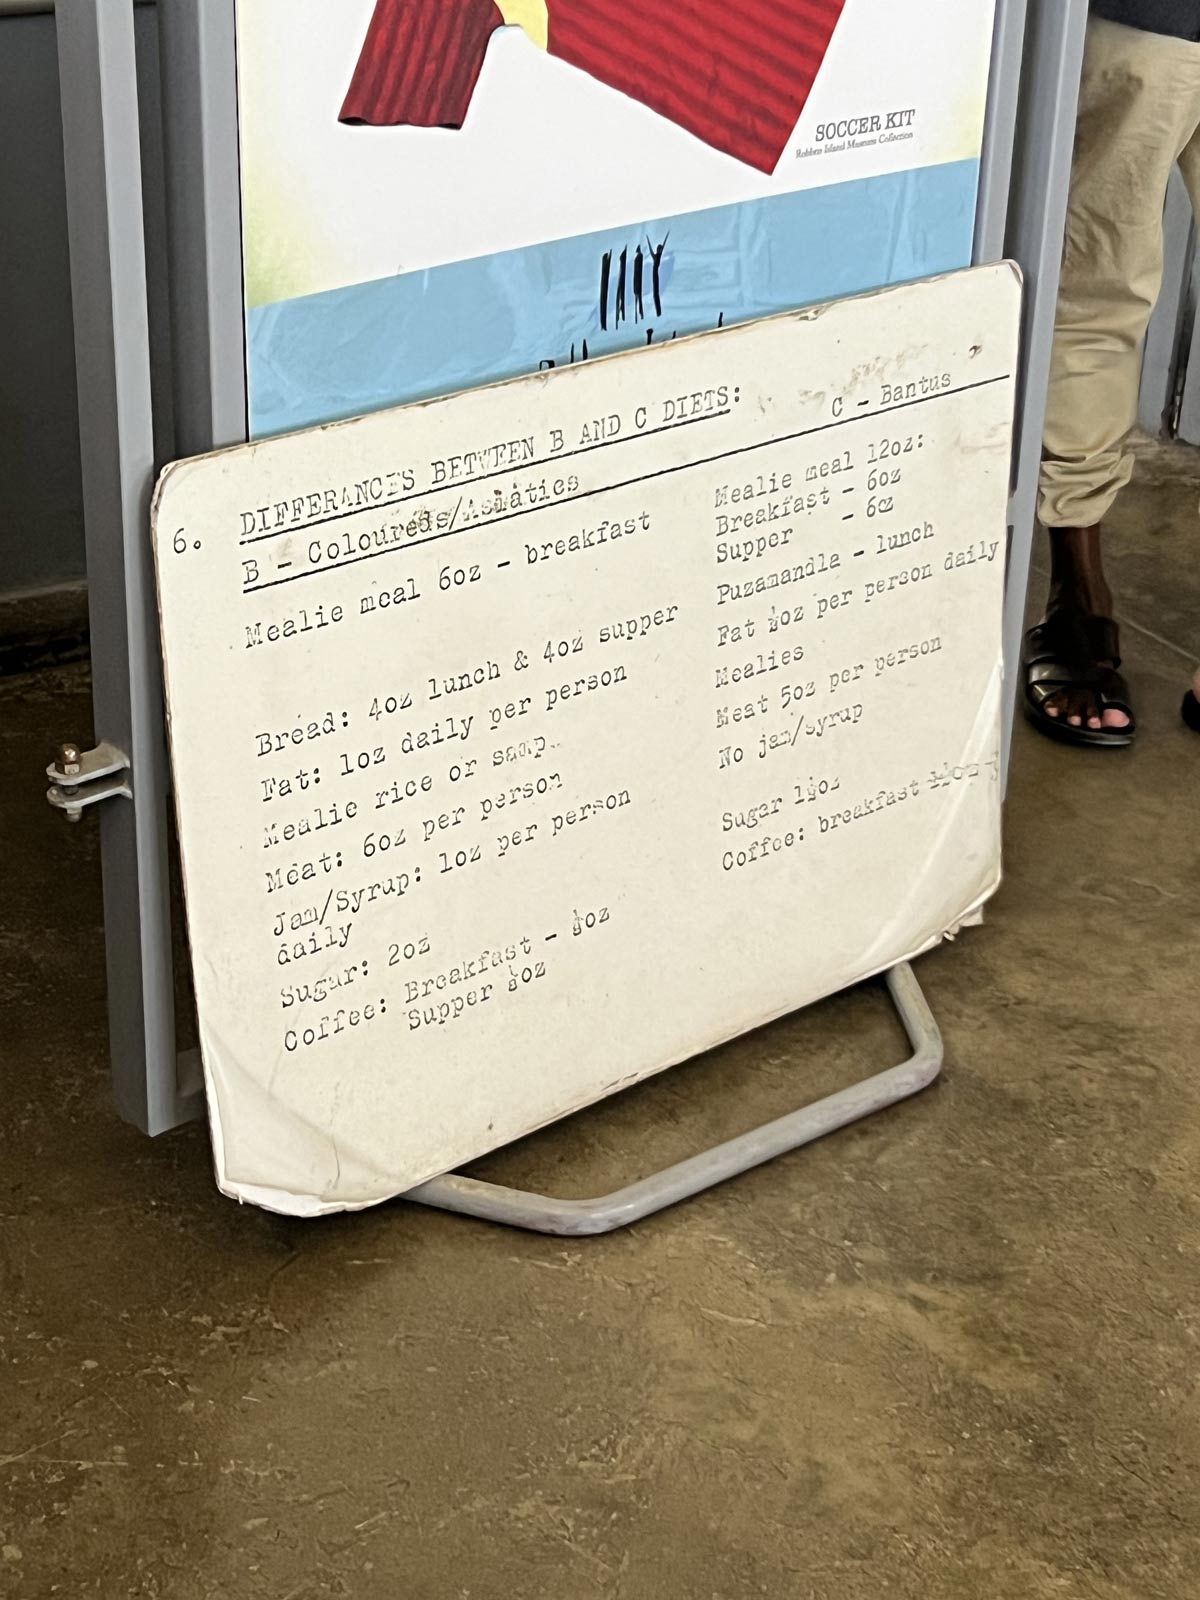 SOCCER KIT
Robben Island Museum Collection
6. DIFFERANCES BETWEEN B AND C DIETS:
B - Coloureds/Asiatics
Mealie meal 6oz - breakfast
Bread: 4oz lunch & 4oz supper
Fat: 1oz daily per person
Mealie rice or samp.
Meat: 6oz per person
Jam/Syrup: 1oz per person
daily
Sugar: 2oz
Coffee: Breakfast -
Supper
C - Bantus
Mealie meal 12oz:
Breakfast - 6oz
Supper - 6oz
Puzamandla - lunch
Fat ½oz per person daily
Mealies
Meat 5oz per person
No jam/syrup
Sugar 1½oz
Coffee: breakfast